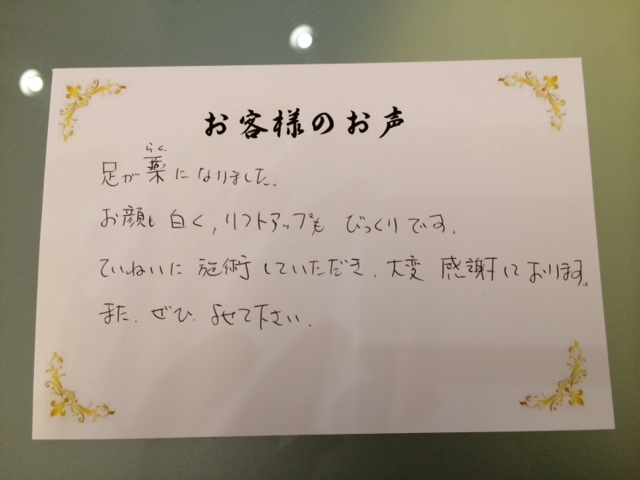 お客様のお声
らく
足が薬になりました。
お顔も白く,リフトアップも びっくりです.
ていねいに 施術していただき、大変 感謝しております。
また、ぜひ、よせて下さい.